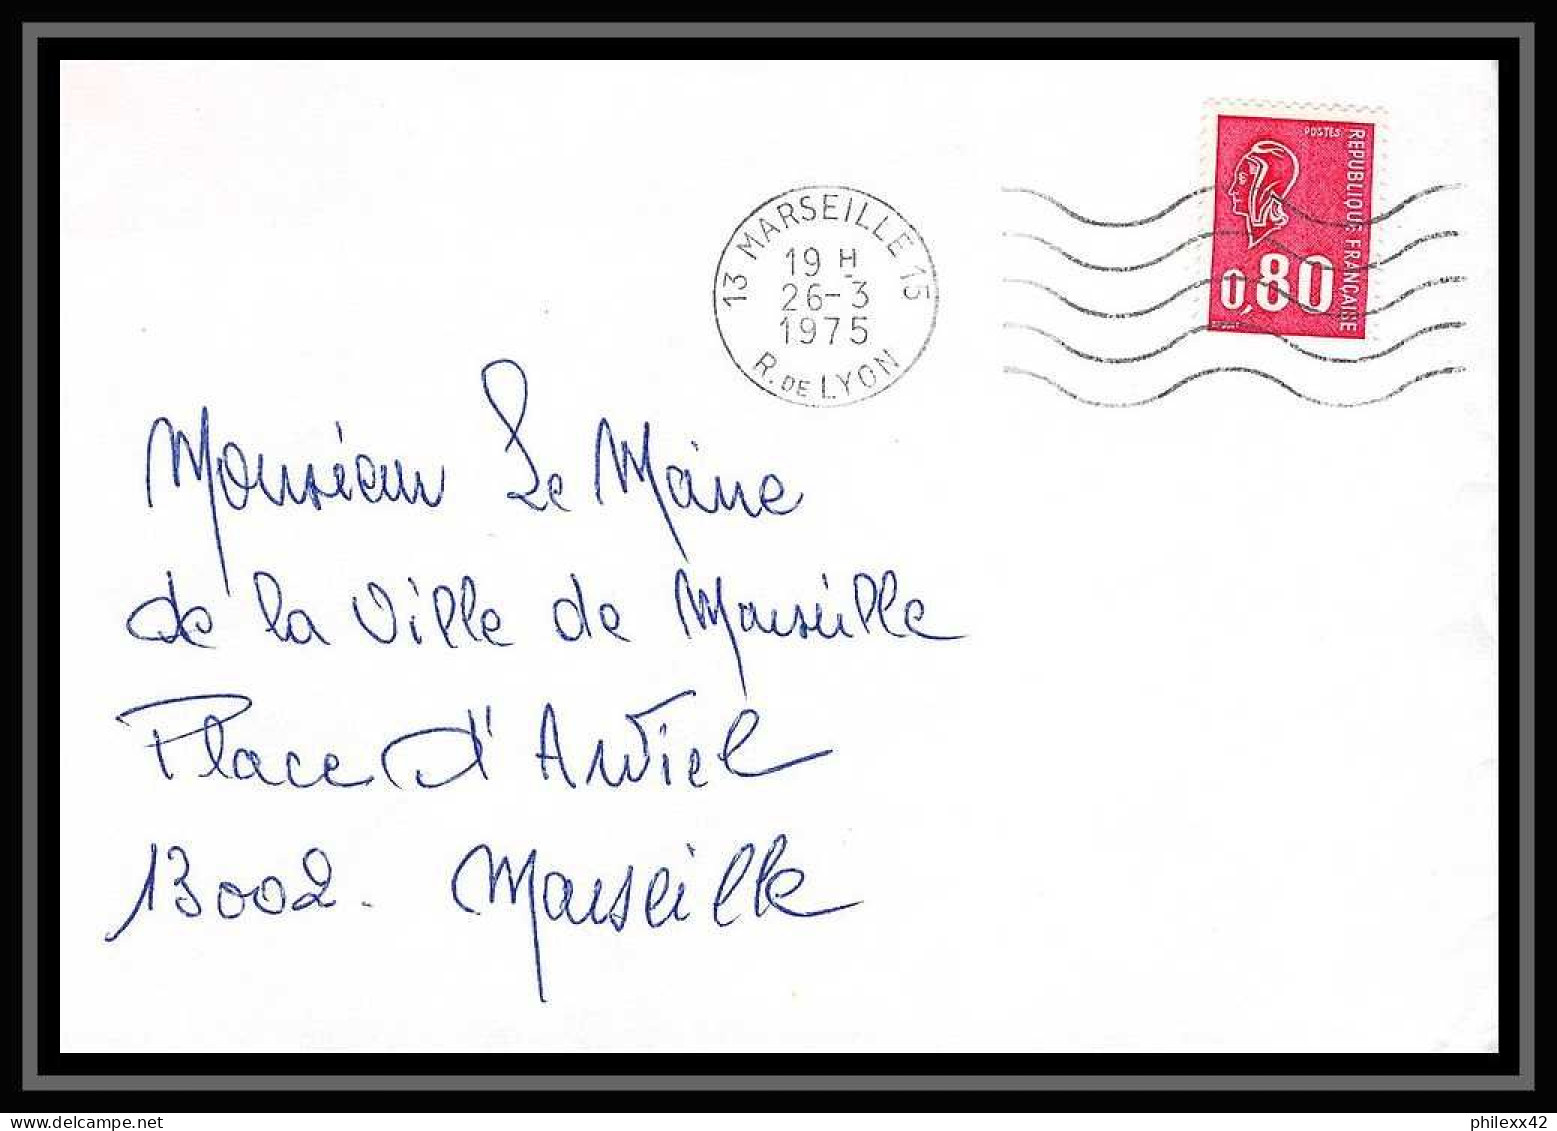 POSTES
REPUBLIQUE FRANÇAISE
0,80
13 MARSEILLE 15
19 H
26-3
1975
R. DE LYON
Monsieur Le Maire
de la Ville de Marseille
Place d'Aviel
13002. Marseille
www.delcampe.net
philexx42